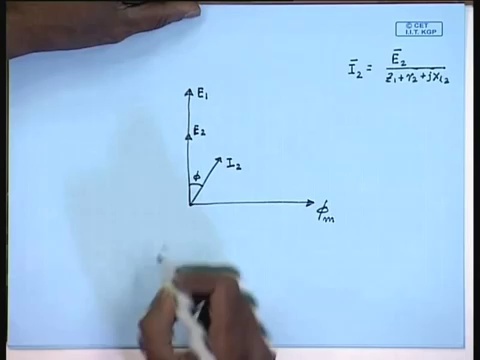 © CET
I.I.T. KGP
Ī₂ = Ē₂ / z₁+r₂+jx₁₂
E₁
E₂
I₂
ϕ
ϕm